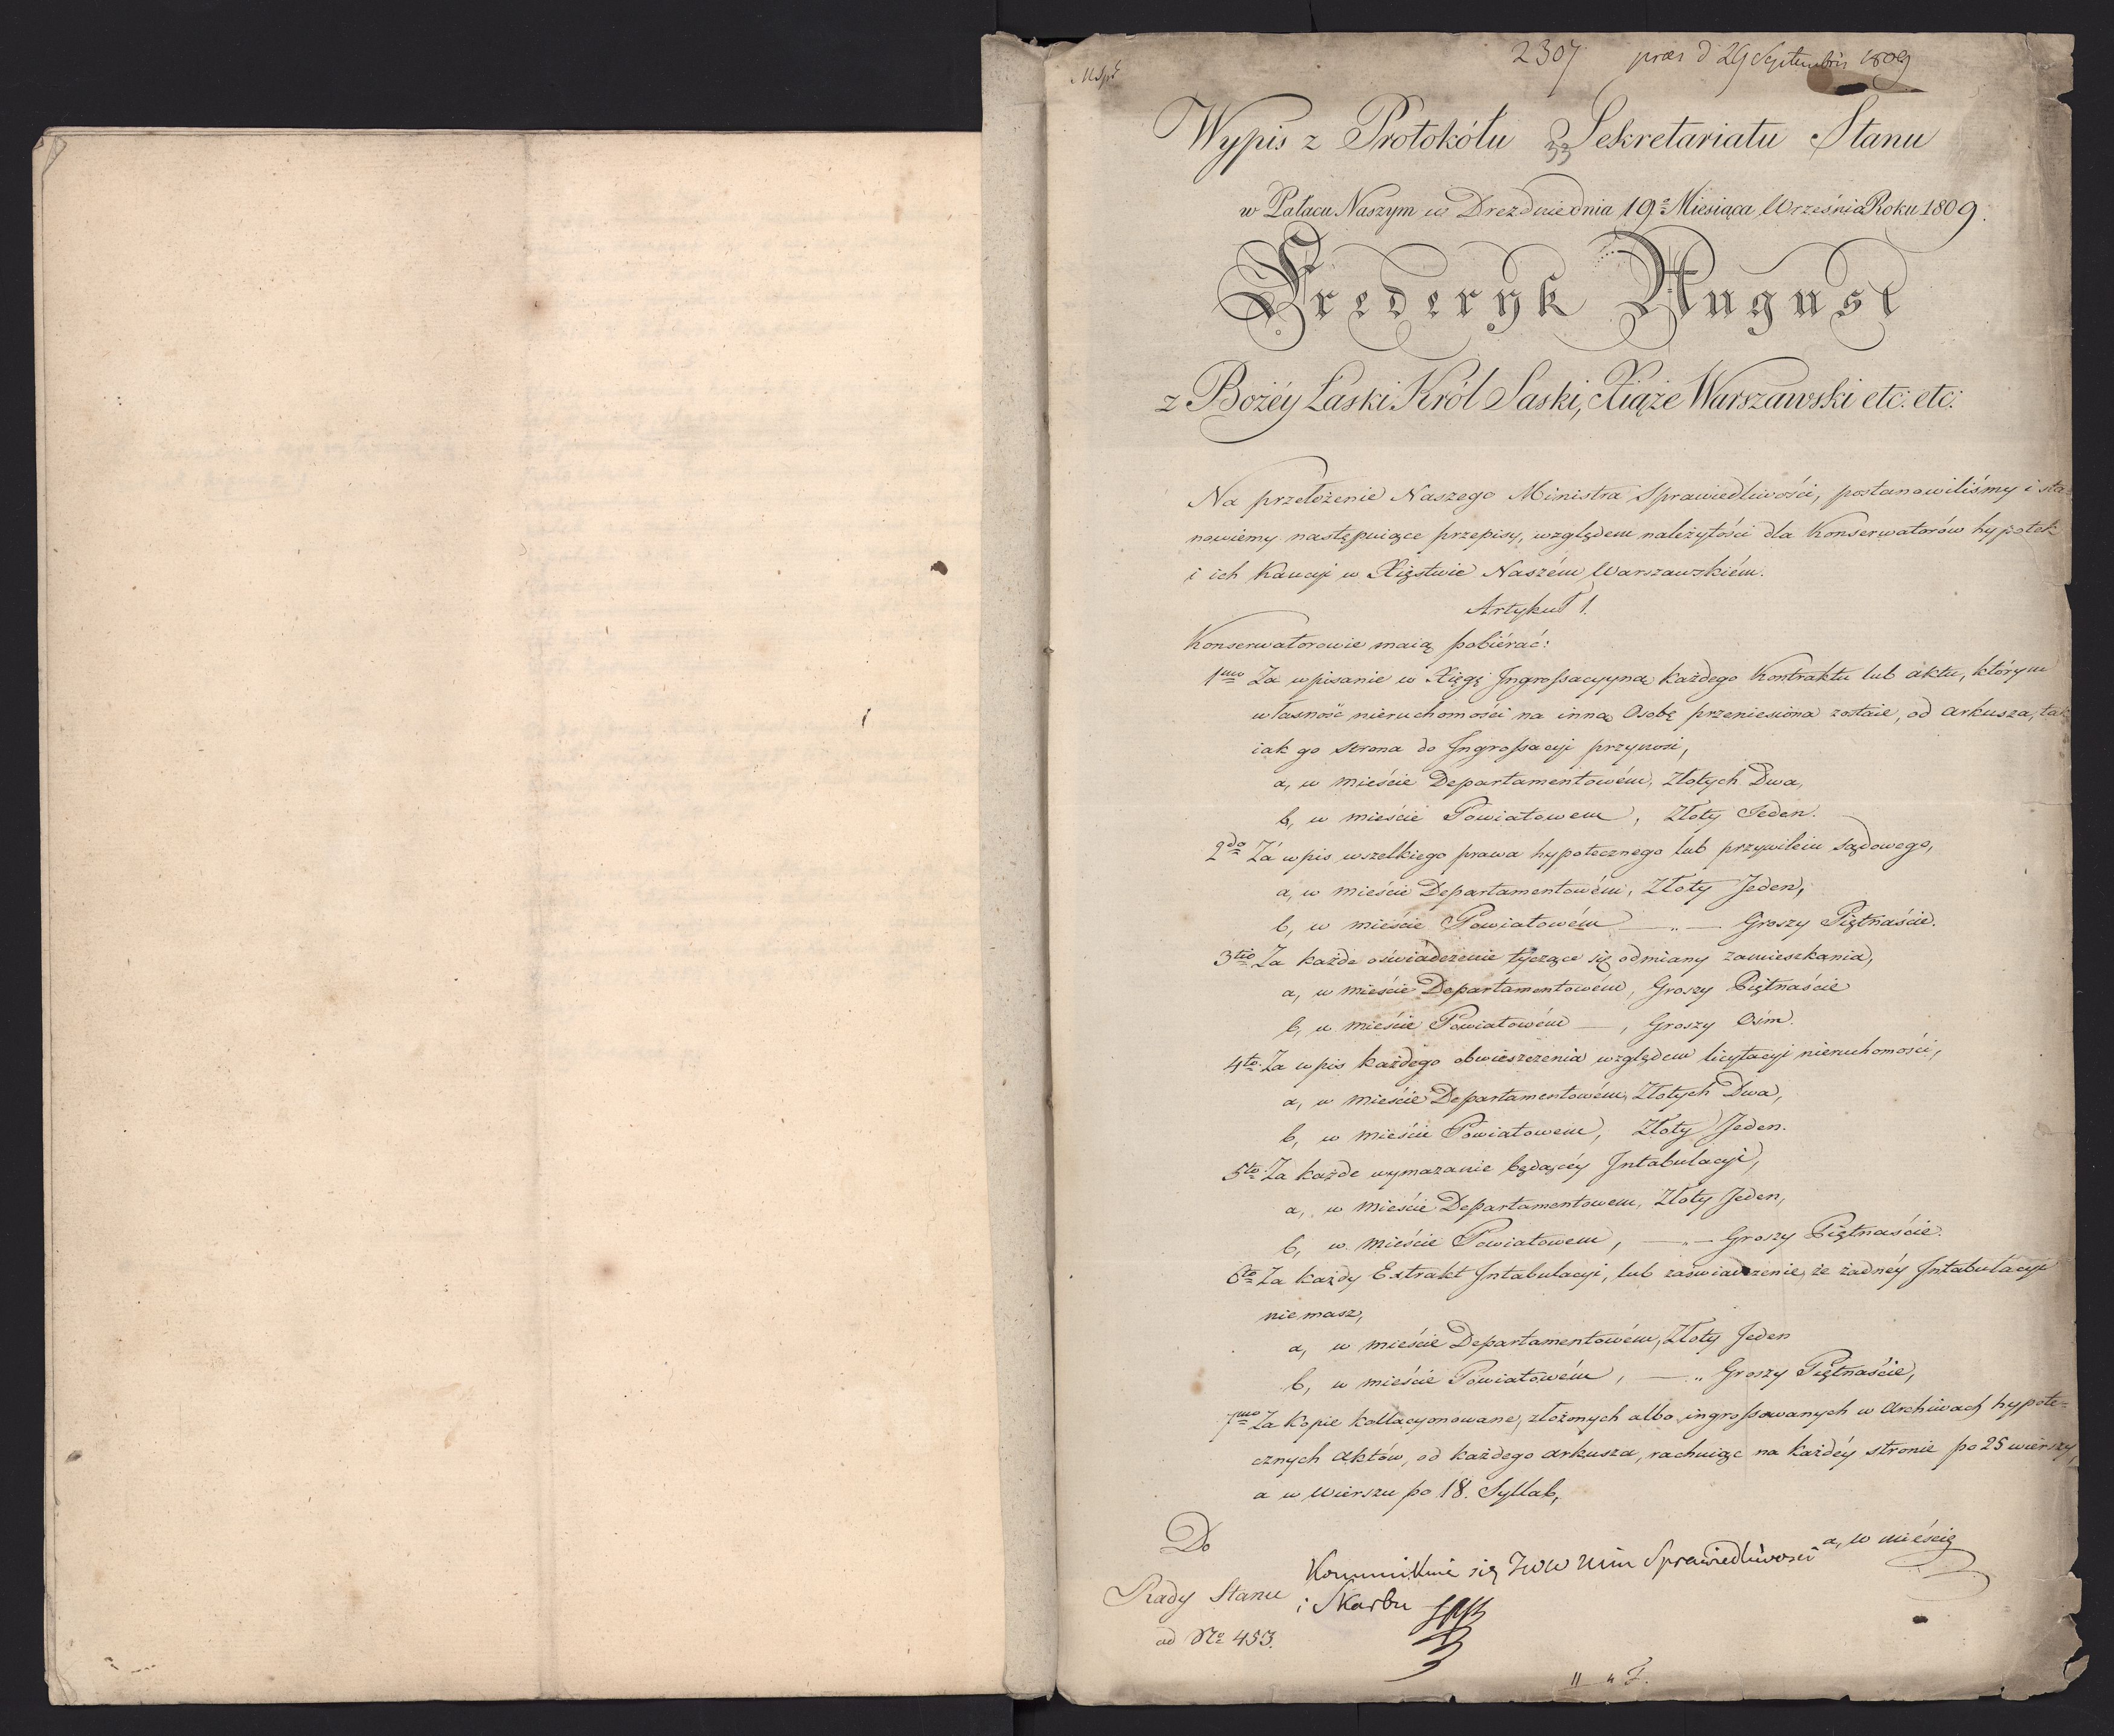 2307 præs d 29 Septembris 1809
Wypis z Protokółu Sekretariatu Stanu
33
w Pałacu Naszym w Dreźdnie dnia 19º Miesiąca Września Roku 1809.
Frederyk August
z Bożéy Łaski Król Saski, Xiąże Warszawski etc: etc:
Na przełożenie Naszego Ministra Sprawiedliwości, postanowiliśmy i sta-
nowiemy następuiące przepisy, względem należytości dla Konserwatorów hypotek
i ich Kaucyi w Xięstwie Naszém Warszawskiém.
Artykuł 1.
Konserwatorowie maią pobiérać:
1mo Za wpisanie w Xięgę Ingrossacyyną każdego Kontraktu lub aktu, którym
własność nieruchomości na inną Osobę przeniesiona zostaie, od arkusza, tak
iak go strona do Ingrossacyi przynosi,
a, w mieście Departamentowém, Złotych Dwa,
b, w mieście Powiatowem, Złoty Jeden.
2do Za wpis wszelkiego prawa hypotecznego lub przywileiu sądowego,
a, w mieście Departamentowém, Złoty Jeden,
b, w mieście Powiatowém — „ — Groszy Piętnaście.
3tio Za każde oświadczenie tyczące się odmiany zamieszkania,
a, w mieście Departamentowém, Groszy Piętnaście
b, w mieście Powiatowém —, Groszy Ośm.
4to Za wpis każdego obwieszczenia względem licytacyi nieruchomości,
a, w mieście Departamentowém, Złotych Dwa,
b, w mieście Powiatowem, Złoty Jeden.
5to Za każde wymazanie będącéy Intabulacyi,
a, w mieście Departamentowem, Złoty Jeden,
b, w mieście Powiatowem, — „ — Groszy Piętnaście.
6to Za każdy Extrakt Intabulacyi, lub zaświadczenie, że żadnéy Intabulacyi
nie masz,
a, w mieście Departamentowém, Złoty Jeden
b, w mieście Powiatowém, — „ Groszy Piętnaście,
7mo Za Kopie kollacyonowane, złożonych albo ingrossowanych w Archiwach hypote-
cznych aktów, od każdego arkusza, rachuiąc na każdéy stronie po 25 wierszy,
a w wierszu po 18. Syllab,
a, w mieście
Do
Rady Stanu
ad Nº 453.
Kommunikuie się JWW Min Sprawiedliwosci
i Skarbu